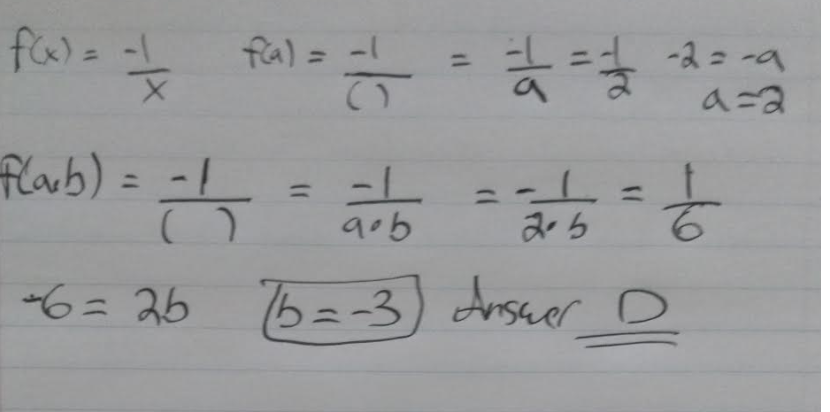 f(x) = -1/x f(a) = -1/( ) = -1/a = -1/2 -2 = -a
a = 2
f(a·b) = -1/( ) = -1/a·b = -1/2·b = 1/6
-6 = 2b b = -3 Answer D